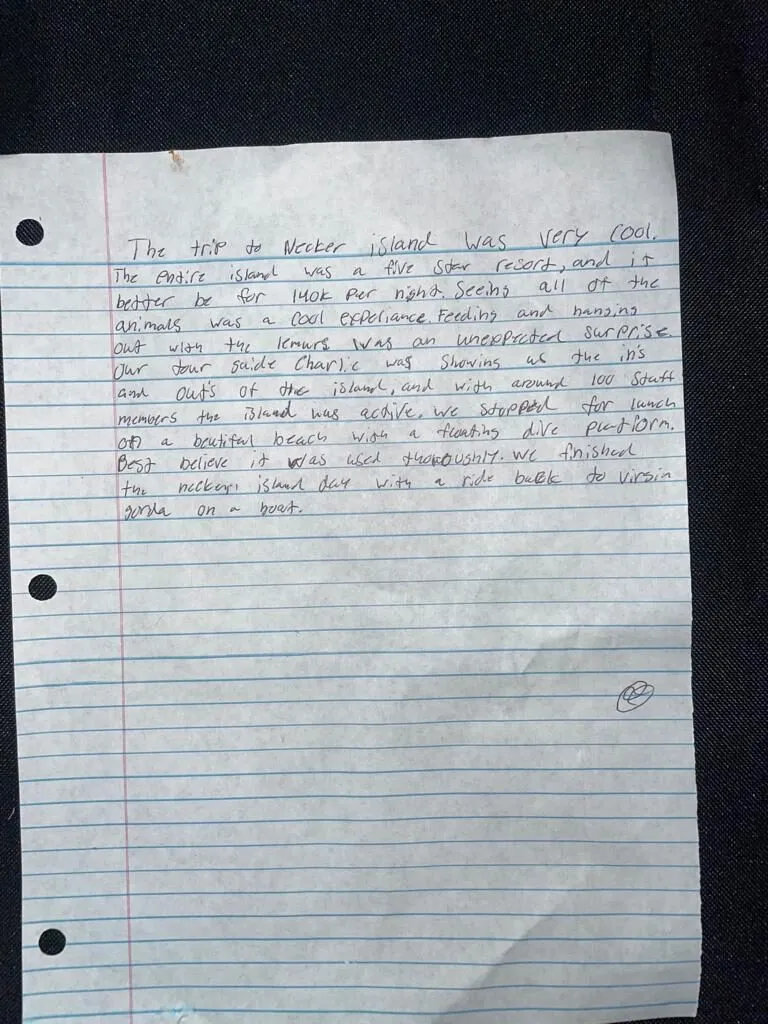 The trip to Necker island was very cool.
The entire island was a five star resort, and it
better be for 140k per night. Seeing all of the
animals was a cool experiance. Feeding and hanging
out with the lemurs was an unexpected surprise.
Our tour guide Charlie was showing us the in's
and out's of the island, and with around 100 staff
members the island was active. We stopped for lunch
on a beutiful beach with a floating dive platform.
Best believe it was used thoroughly. We finished
the neckers island day with a ride back to virgin
gorda on a boat.